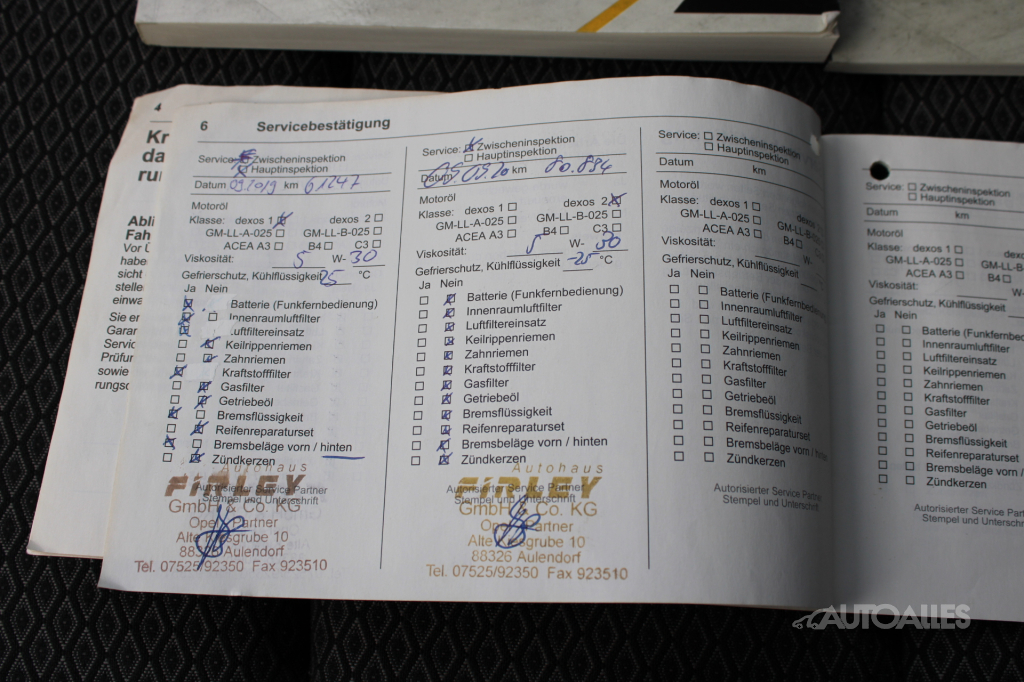 4
Kr
da
run
Abli
Fah
Vor Ü
habe
sicht
stelle
einwa
Sie er
Garan
Servic
Prüfun
sowie
rungsd
6 Servicebestätigung
Service: Zwischeninspektion
Hauptinspektion
Datum 09.2019 km 61247
Motoröl
Klasse: dexos 1 dexos 2
GM-LL-A-025 GM-LL-B-025
ACEA A3 B4 C3
Viskosität: 5 W- 30
Gefrierschutz, Kühlflüssigkeit 25 °C
Ja Nein
Batterie (Funkfernbedienung)
Innenraumluftfilter
Luftfiltereinsatz
Keilrippenriemen
Zahnriemen
Kraftstofffilter
Gasfilter
Getriebeöl
Bremsflüssigkeit
Reifenreparaturset
Bremsbeläge vorn / hinten
Zündkerzen
Autohaus
FIRLEY
Autorisierter Service Partner
Stempel und Unterschrift
GmbH & Co. KG
Opel Partner
Alte Kiesgrube 10
88326 Aulendorf
Tel. 07525/92350 Fax 923510
Service: Zwischeninspektion
Hauptinspektion
Datum 09.20 km 80.894
Motoröl
Klasse: dexos 1 dexos 2
GM-LL-A-025 GM-LL-B-025
ACEA A3 B4 C3
Viskosität: 5 W- 30
Gefrierschutz, Kühlflüssigkeit -25 °C
Ja Nein
Batterie (Funkfernbedienung)
Innenraumluftfilter
Luftfiltereinsatz
Keilrippenriemen
Zahnriemen
Kraftstofffilter
Gasfilter
Getriebeöl
Bremsflüssigkeit
Reifenreparaturset
Bremsbeläge vorn / hinten
Zündkerzen
Autohaus
FIRLEY
Autorisierter Service Partner
Stempel und Unterschrift
GmbH & Co. KG
Opel Partner
Alte Kiesgrube 10
88326 Aulendorf
Tel. 07525/92350 Fax 923510
Service: Zwischeninspektion
Hauptinspektion
Datum km
Motoröl
Klasse: dexos 1 dexos
GM-LL-A-025 GM-LL-B-025
ACEA A3 B4
Viskosität: W-
Gefrierschutz, Kühlflüssigkeit
Ja Nein
Batterie (Funkfernbedienung)
Innenraumluftfilter
Luftfiltereinsatz
Keilrippenriemen
Zahnriemen
Kraftstofffilter
Gasfilter
Getriebeöl
Bremsflüssigkeit
Reifenreparaturset
Bremsbeläge vorn / hinten
Zündkerzen
Autorisierter Service Partner
Stempel und Unterschrift
Service: Zwischeninspektion
Hauptinspektion
Datum km
Motoröl
Klasse: dexos 1 dexo
GM-LL-A-025 GM-LL-B
ACEA A3 B4
Viskosität: W-
Gefrierschutz, Kühlflüssigkeit
Ja Nein
Batterie (Funkfernbed
Innenraumluftfilter
Luftfiltereinsatz
Keilrippenriemen
Zahnriemen
Kraftstofffilter
Gasfilter
Getriebeöl
Bremsflüssigkeit
Reifenreparaturset
Bremsbeläge vorn /
Zündkerzen
Autorisierter Service Part
Stempel und Unterschr
AUTOALLES